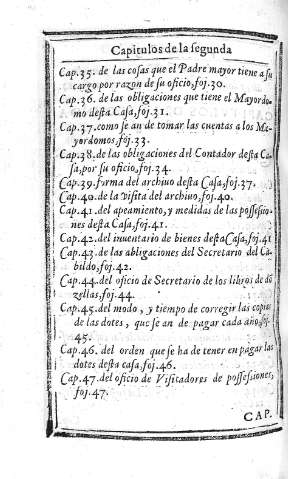 Capitulos de la segunda
Cap.35. de las cosas que el Padre mayor tiene a su
cargo por razon de su oficio, foj.30.
Cap.36. de las obligaciones que tiene el Mayordo-
mo desta Casa, foj.31.
Cap.37. como se an de tomar las cuentas a los Ma-
yordomos, foj.33.
Cap.38. de las obligaciones del Contador desta Ca-
sa, por su oficio, foj.34.
Cap.39. forma del archiuo desta Casa, foj.37.
Cap.40. de la visita del archiuo, foj.40.
Cap.41. del apeamiento, y medidas de las possessio-
nes desta Casa, foj.41.
Cap.42. del inuentario de bienes desta Casa, foj.41
Cap.43. de las abligaciones del Secretario del Ca-
bildo, foj.42.
Cap.44. del oficio de Secretario de los libros de dõ
zellas, foj.44.
Cap.45. del modo, y tiempo de corregir las copias
de las dotes, que se an de pagar cada año, foj.
45.
Cap.46. del orden que se ha de tener en pagar las
dotes desta casa, foj.46.
Cap.47. del oficio de Visitadores de possessiones,
foj.47.
CAP.